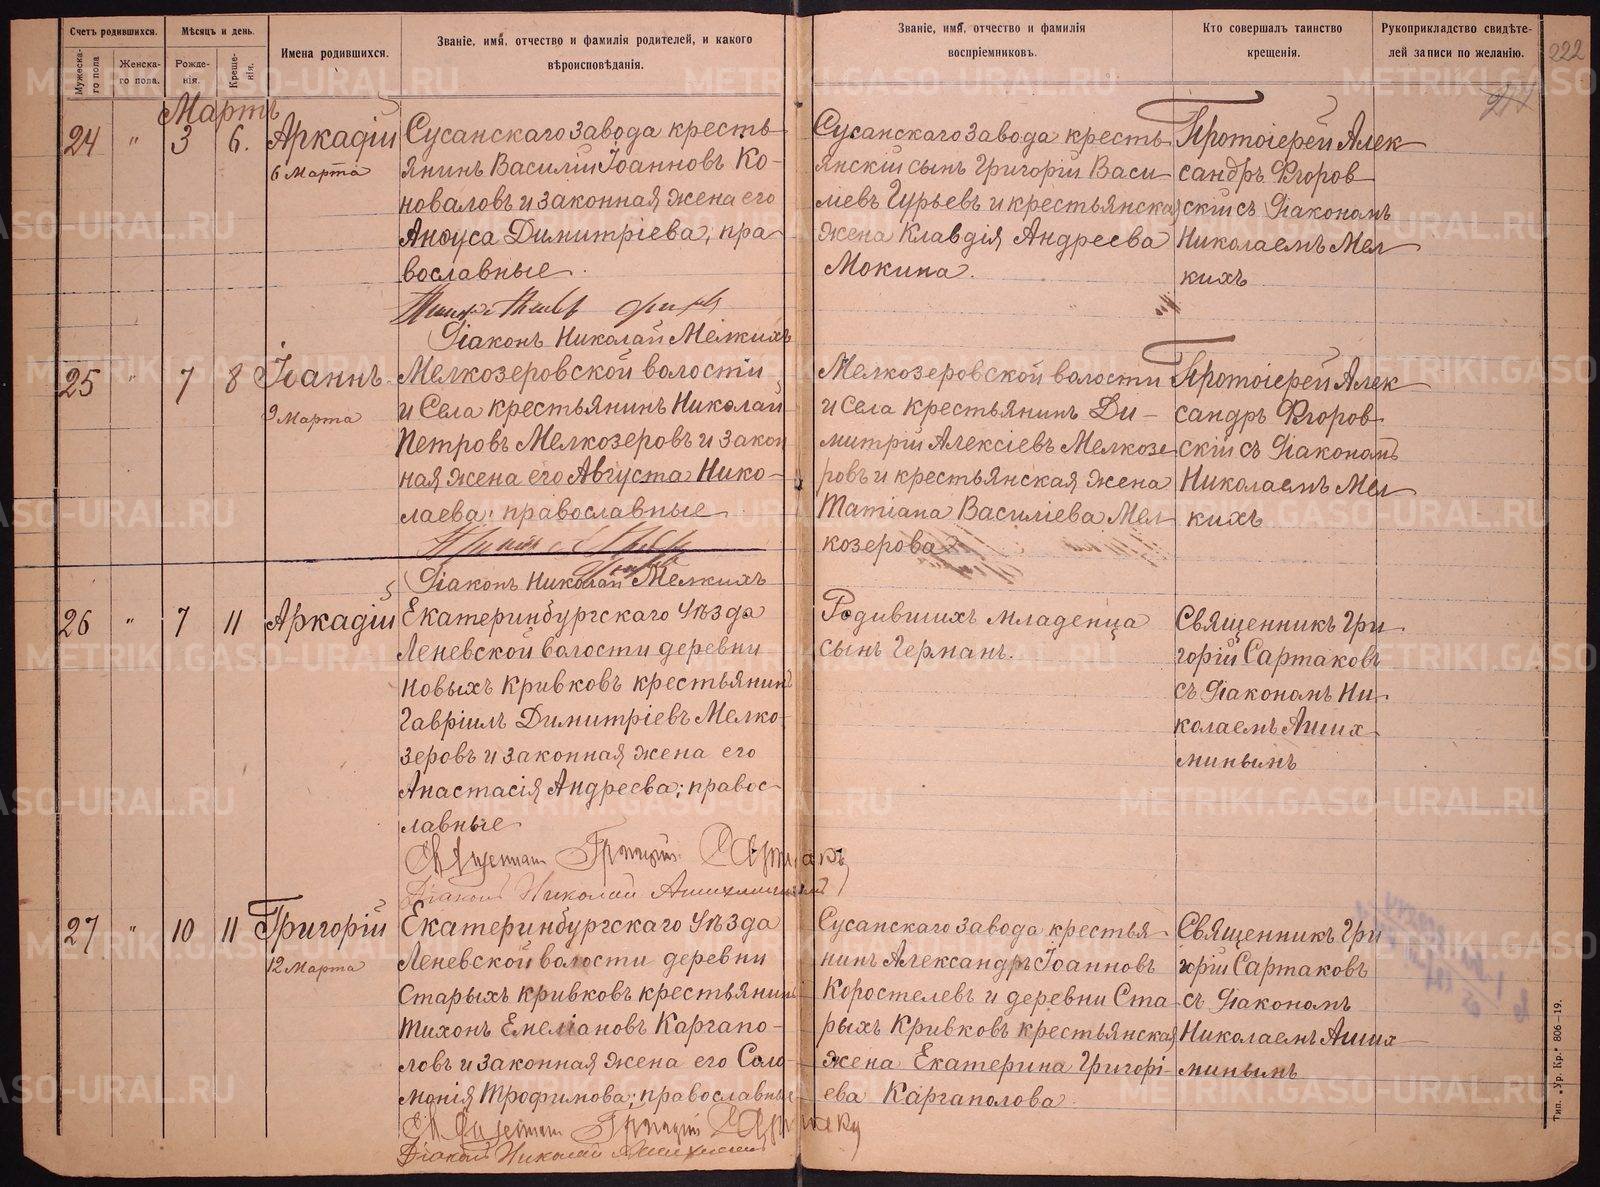 Счетъ родившихся.
Мѣсяцъ и день.
Мужеска-го пола
Женска-го пола.
Рожде-нія.
Креще-нія.
Имена родившихся.
Званіе, имя, отчество и фамилія родителей, и какого
вѣроисповѣданія.
Званіе, имя, отчество и фамилія
воспріемниковъ.
Кто совершалъ таинство
крещенія.
Рукоприкладство свидѣте-
лей записи по желанію.
222
Мартъ
24 " 3 6. Аркадій
6 Марта
Сусанскаго завода кресть-
янинъ Василій Іоанновъ Ко-
новаловъ и законная жена его
Анфуса Димитріева, пра-
вославные.
Діаконъ Николай Мелкихъ
Сусанскаго завода кресть-
янскій сынъ Григорій Васи-
льевъ Гурьевъ и крестьянская
жена Клавдія Андреева
Мокина.
Протоіерей Алек-
сандръ Флоров-
скій съ Діакономъ
Николаемъ Мел-
кихъ
25 " 7 8 Іоаннъ.
9 Марта
Мелкозеровской волости
и села крестьянинъ Николай
Петровъ Мелкозеровъ и закон-
ная жена его Августа Нико-
лаева; православные
Діаконъ Николай Мелкихъ
Мелкозеровской волости
и села крестьянинъ Ди-
митрій Алексіевъ Мелкозе-
ровъ и крестьянская жена
Татіана Василіева Мел-
козерова
Протоіерей Алек-
сандръ Флоров-
скій съ Діакономъ
Николаемъ Мел-
кихъ
26 " 7 11 Аркадій
Екатеринбургскаго уѣзда
Леневской волости деревни
Новыхъ Кривковъ крестьянинъ
Гавріилъ Димитріевъ Мелко-
зеровъ и законная жена его
Анастасія Андреева; правос-
лавные
Священникъ Григорій Сартаковъ
Діаконъ Николай Ашихминъ
Родившихъ младенца
сынъ Германъ.
Священникъ Гри-
горій Сартаковъ
съ Діакономъ Ни-
колаемъ Аших-
минымъ
27 " 10 11 Григорій
12 Марта
Екатеринбургскаго уѣзда
Леневской волости деревни
Старыхъ Кривковъ крестьянинъ
Тихонъ Емеліановъ Каргапо-
ловъ и законная жена его Соло-
монія Трофимова; православные
Священникъ Григорій Сартаковъ
Діаконъ Николай Ашихминъ
Сусанскаго завода крестья-
нинъ Александръ Іоанновъ
Коростелевъ и деревни Ста-
рыхъ Кривковъ крестьянская
жена Екатерина Григорі-
ева Каргаполова.
Священникъ Гри
горій Сартаковъ
съ Діакономъ
Николаемъ Аших-
минымъ
Тип. „Ур. Кр." 806—19.
METRIKI.GASO-URAL.RU